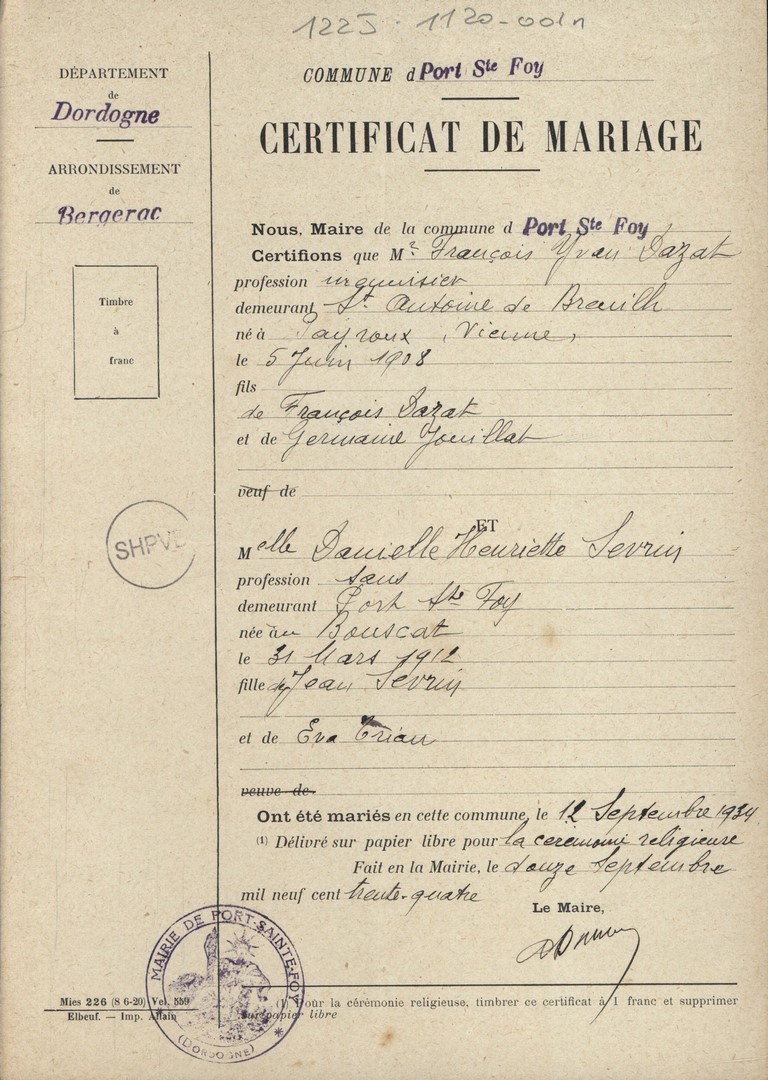 122J · 1120-001n
DÉPARTEMENT
de
Dordogne
ARRONDISSEMENT
de
Bergerac
Timbre
à
franc
SHPVD
COMMUNE d Port Ste Foy
CERTIFICAT DE MARIAGE
Nous, Maire de la commune d Port Ste Foy
Certifions que Mr François Yvan Dazat
profession
demeurant St Antoine de Breuilh
né à Payroux (Vienne)
le 5 Juin 1908
fils
de François Dazat
et de Germaine Jouillat
veuf de
ET
Melle Danielle Henriette Sevrin
profession sans
demeurant Port Ste Foy
née au Bouscat
le 31 Mars 1912
fille de Jean Sevrin
et de Eva Trian
veuve de
Ont été mariés en cette commune, le 12 Septembre 1934
(1) Délivré sur papier libre pour la cérémonie religieuse
Fait en la Mairie, le douze Septembre
mil neuf cent trente-quatre
Le Maire,
MAIRIE DE PORT-SAINTE-FOY
(DORDOGNE)
Mies 226 (8 6-20) Vel. 559
Elbeuf. — Imp. Allain
(1) Pour la cérémonie religieuse, timbrer ce certificat à 1 franc et supprimer
sur papier libre